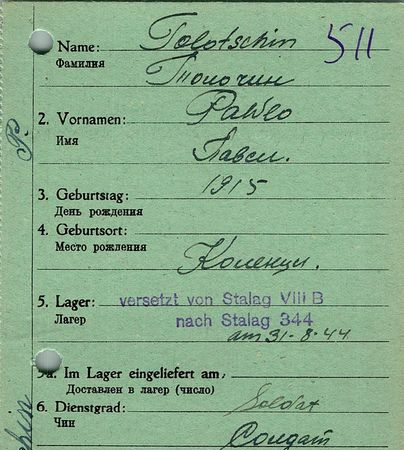 Name: Tolotschin 511
Фамилия Толочин
2. Vornamen: Pawlo
Имя Павел.
3. Geburtstag: 1915
День рождения
4. Geburtsort:
Место рождения
5. Lager: versetzt von Stalag VIII B
Лагер nach Stalag 344
am 31-8-44
5a. Im Lager eingeliefert am:
Доставлен в лагер (число)
6. Dienstgrad: Soldat
Чин Солдат